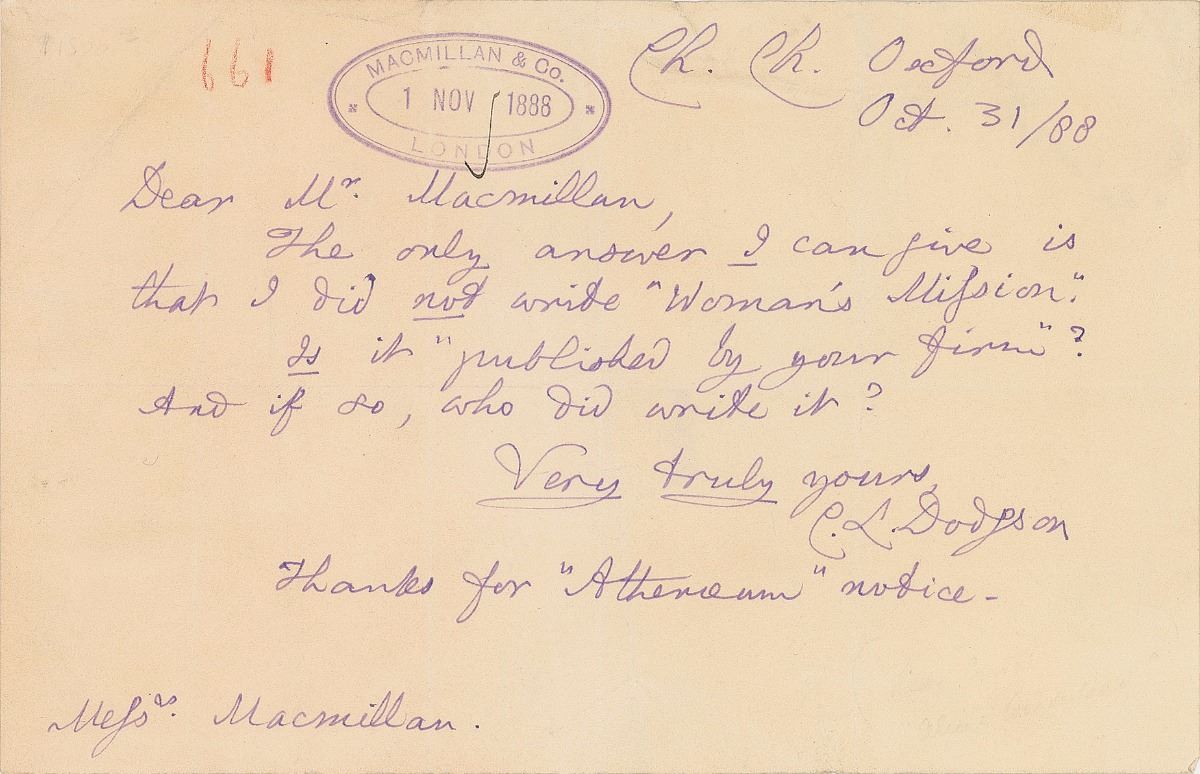 661
MACMILLAN & CO.
1 NOV 1888
LONDON
Ch. Ch. Oxford
Oct. 31/88
Dear Mr. Macmillan,
The only answer I can give is
that I did not write "Woman's Miſsion".
Is it "published by your firm"?
And if so, who did write it?
Very truly yours,
C. L. Dodgson
Thanks for "Athenæum" notice -
Meſsrs. Macmillan.